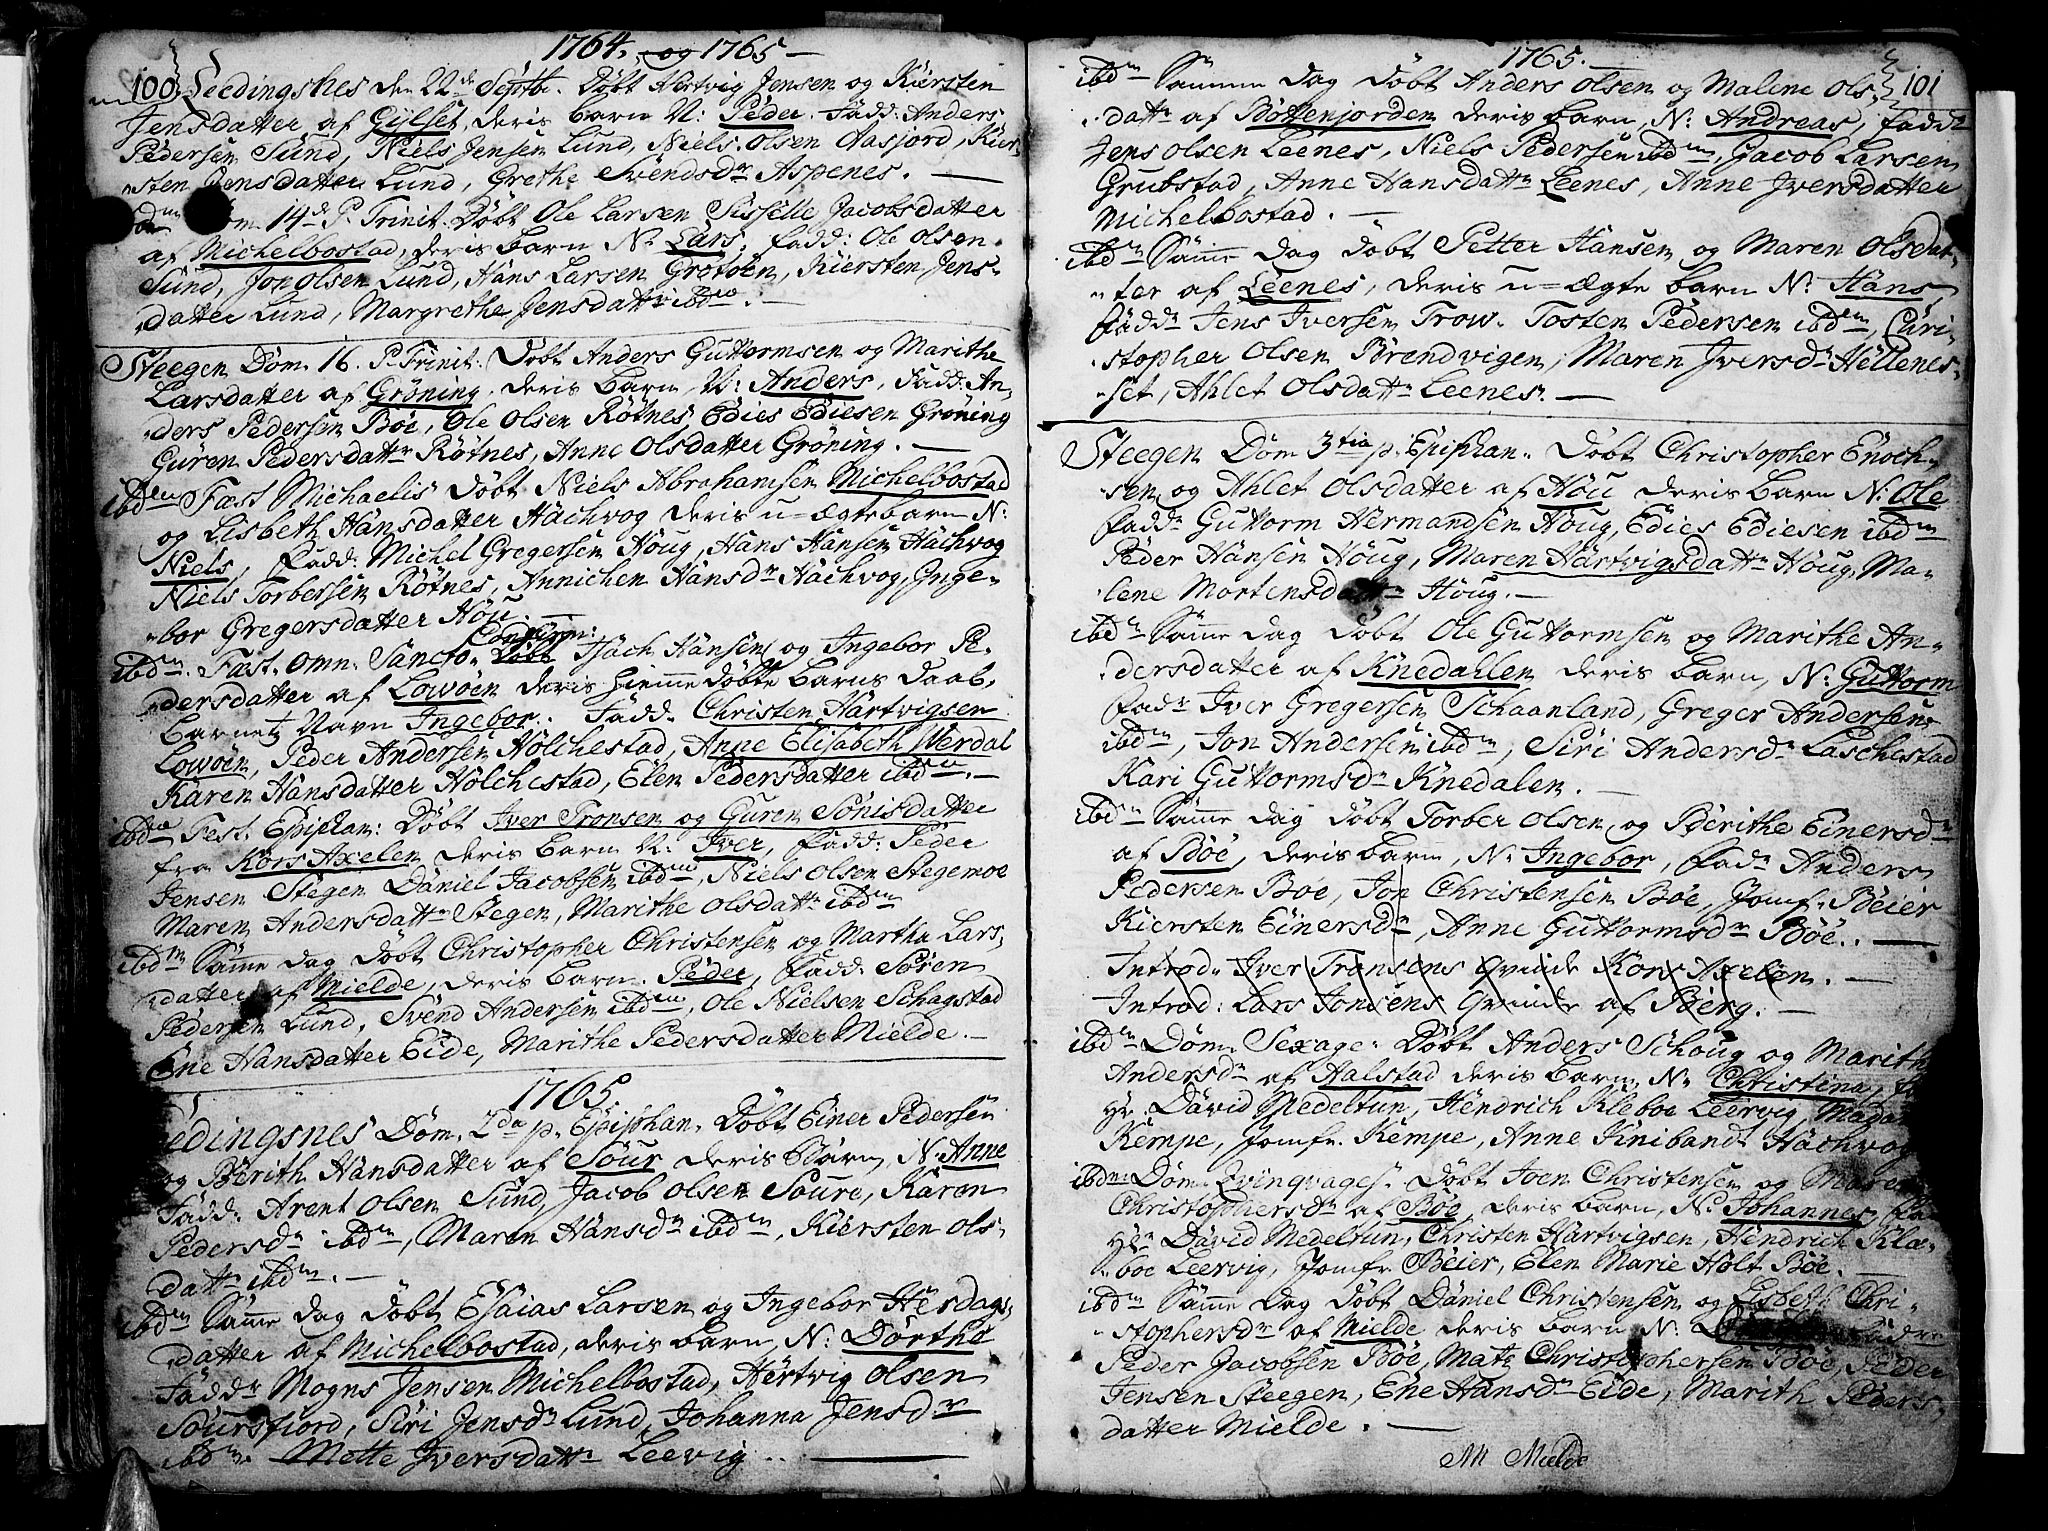 1764, og 1765
100 Leedingsnes den 22de Septbr. Døbt Hertvig Jensen og Kiersten
Jensdatter af Gylset, deris barn N: Peder. Fadd: Anders
Pedersen Sund, Niels Jensen Lund, Niels Olsen Aasjord, Kier-
sten Jensdatter Lund, Grethe Svendsdr Aspenes.
Dom 14de P. Trinit. Døbt Ole Larsen Sissille Jacobsdatter
af Michelbostad, deris barn N: Lars. fadd: Ole Olsen
Sund, Jon Olsen Lund, Hans Larsen Grotøen, Kiersten Jens-
datter Lund, Margrethe Jensdattr ibdm.
Steegen Dom. 16. P. Trinit. Døbt Anders Guttormsen og Marithe
Larsdatter af Grøning, deris barn N: Anders, Fadd: An-
ders Pedersen Bøe, Ole Olsen Røtnes, Edies Ediesen Grøning
Guren Pedersdattr Røtnes, Anne Olsdatter Grøning.
ibdm Fæst Michaelis Døbt Niels Abrahamsen Michelbostad
og Lisbeth Hansdatter Hachvog deris u=ægte barn N:
Niels, fadd: Michel Gregersen Houg, Hans Hansen Hachvog
Niels Torbersen Røtnes, Annichen Hansdr Hachvog, Inge-
bor Gregersdatter Høu.
Confirm:
ibdm. Fæst. Omn. Sancto. Døbt Isach Hansen og Ingebor Pe-
dersdatter af Lowøen deris Hiemme døbte barns Daab,
Barnetz Navn Ingebor. Fadd. Christen Hartvigsen
Lowøen, Peder Andersen Holchestad, Anne Elisabeth Werdal
Karen Hansdatter Holchestad, Elen Pedersdatter ibdm.
ibdm Fest. Epiphan: Døbt Iver Tronsen og Guren Sønisdatter
fra Kors Axelen deris barn N: Iver, Fadd: Peder
Jensen Stegen Daniel Jacobsen ibdm, Niels Olsen Stegemoe
Maren Andersdattr Stegen, Marithe Olsdattr ibdm
ibdm Samme dag døbt Christopher Christensen og Martha Lars-
datter af Mielde, deris barn Peder, Fadd: Søren
Pedersen Lund, Svend Andersen ibdm, Ole Nielsen Schagstad
Ene Hansdatter Eide, Marithe Pedersdatter Mielde.
1765.
edingsnes Dom. 2da p. Epiphan. Døbt Einer Pedersen
og Berith Hansdatter af Sour deris Barn, N: Anne
Fadd: Arent Olsen Sund, Jacob Olsen Soure, Karen
Pedersdr ibdm, Maren Hansdr ibdm, Kiersten Ols-
dattr ibdm.
ibdm Samme dag døbt Esaias Larsen og Ingebor Hersdags-
datter af Michelbostad, deris barn, N: Dorthe
Faddr Mogns Jensen Michelbostad, Hertvig Olsen
Soursfiord, Siri Jensdr Lund, Johanna Jensdr
ibdm. Mette Iversdattr Leevig.
1765.
101
ibdm Samme dag døbt Anders Olsen og Malene Ols-
dattr af Bottenjorden deris barn, N: Andreas, faddr
Jens Olsen Leenes, Niels Pedersen ibdm, Jacob Larsen
Grubstad, Anne Hansdattr Leenes, Anne Iversdatter
Michelbostad.
ibdm Samme dag døbt Petter Hansen og Maren Olsdat-
ter af Leenes, deris u=ægte barn N: Hans
Faddr Jens Iversen Trow. Tosten Pedersen ibdm, Chri-
stopher Olsen Brendvigen, Maren Iversdr Hellenes-
set, Ahlet Olsdattr Leenes.
Steegen Dom 3tia p. Epiphan. Døbt Christopher Enoch-
sen og Ahlet Olsdatter af Høu deris barn N: Ole
Faddr Guttorm Hermandsen Houg, Edies Ediesen ibdm
Peder Hansen Houg, Maren Hartvigsdattr Houg, Ma-
lene Mortensdattr Houg.
ibdm Samme dag døbt Ole Guttormsen og Marithe An-
dersdatter af Knedahlen deris barn, N: Guttorm
Fadr Iver Gregersen Schaanland, Greger Andersen
ibdm, Jon Andersen ibdm, Siri Andersdr Laschestad
Kari Guttormsdr Knedalen.
ibdm Samme dag døbt Torber Olsen og Berithe Einersdr
af Bøe, deris barn, N: Ingebor, Fadr Anders
Pedersen Bøe, Jon Christensen Bøe, Jomfr. Beier
Kiersten Einersdr, Anne Guttormsdr Bøe.
Introd. Iver Tronsens Qvinde Kors Axelen.
Introd: Lars Jonsens Qvinde af Berg.
ibdm Dom. Sexage. Døbt Anders Schoug og Marith
Andersdr af Aalstad deris barn, N: Christina,
Hr. David Medeltun, Hendrich Kleboe Leervig, Madam
Kempe, Jomfr. Kempe, Anne Kiniband. Hachvog
ibdm Dom. Qvinqvages. Døbt Joen Christensen og Maren
Christophersdr af Bøe, deris barn, N: Johannes,
Hr David Medeltun, Christen Hartvigsen, Hendrich Kla-
boe Leervig, Jomfr Beier, Elen Marie Holt Bøe.
ibdm Samme dag døbt Daniel Christensen og Lisbeth Chri-
stophersdr af Mielde deris barn N: Faddr
Peder Jacobsen Bøe, Matz Christophersen Bøe, Peder
Jensen Steegen, Ene Hansdr Eide, Marith Peders-
datter Mielde.
Mield